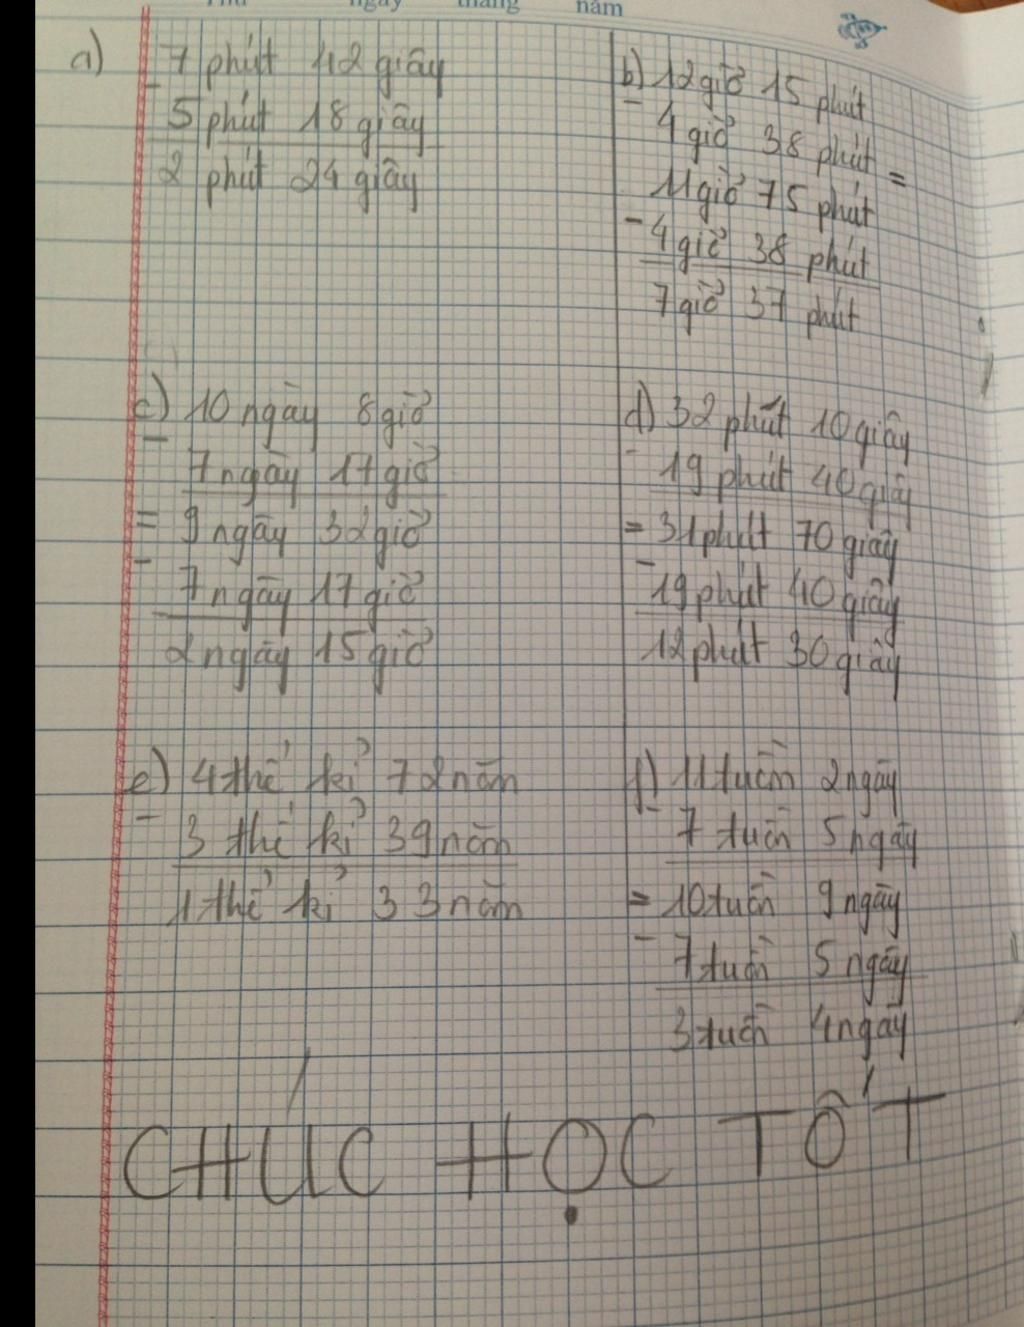 Thứ ngày tháng năm
a) 7 phút 42 giây
-
5 phút 18 giây
2 phút 24 giây
b) 12 giờ 15 phút
-
4 giờ 38 phút =
11 giờ 75 phút
-
4 giờ 38 phút
7 giờ 37 phút
c) 10 ngày 8 giờ
-
7 ngày 17 giờ
= 9 ngày 32 giờ
-
7 ngày 17 giờ
2 ngày 15 giờ
d) 32 phút 10 giây
-
19 phút 40 giây
= 31 phút 70 giây
-
19 phút 40 giây
12 phút 30 giây
e) 4 thế kỉ 72 năm
-
3 thế kỉ 39 năm
1 thế kỉ 33 năm
f) 11 tuần 2 ngày
-
7 tuần 5 ngày
= 10 tuần 9 ngày
-
7 tuần 5 ngày
3 tuần 4 ngày
CHÚC HỌC TỐT